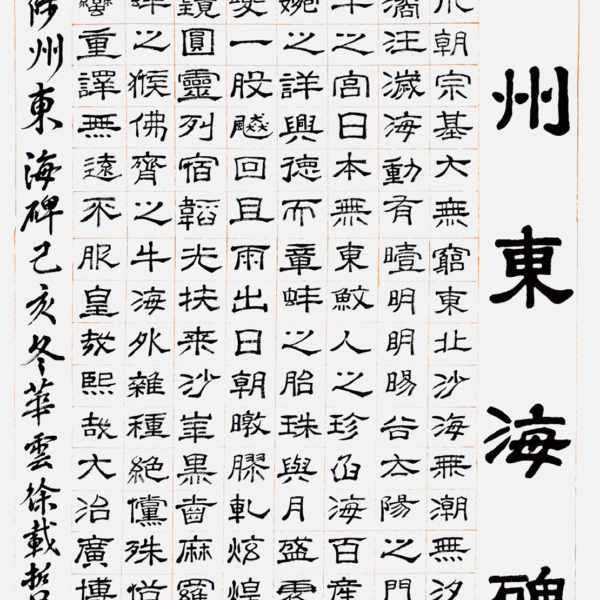 州東海碑
朝宗基大無窮東北沙海無潮無汐
潏汪濊海動有曀明明暘谷太陽之門
牛之宮日本無東鮫人之珍涵海百産
婉之詳興德而章蚌之胎珠與月盛衰
夔一股飇回且雨出日朝暾膠軋炫煌
鏡圓靈列宿韜光扶来沙崋黒齒麻羅
之猴佛齊之牛海外雜種絶儻殊俗
蠻重譯無遠不服皇哉熙哉大治廣博
陟州東海碑己亥冬華雲徐載哲